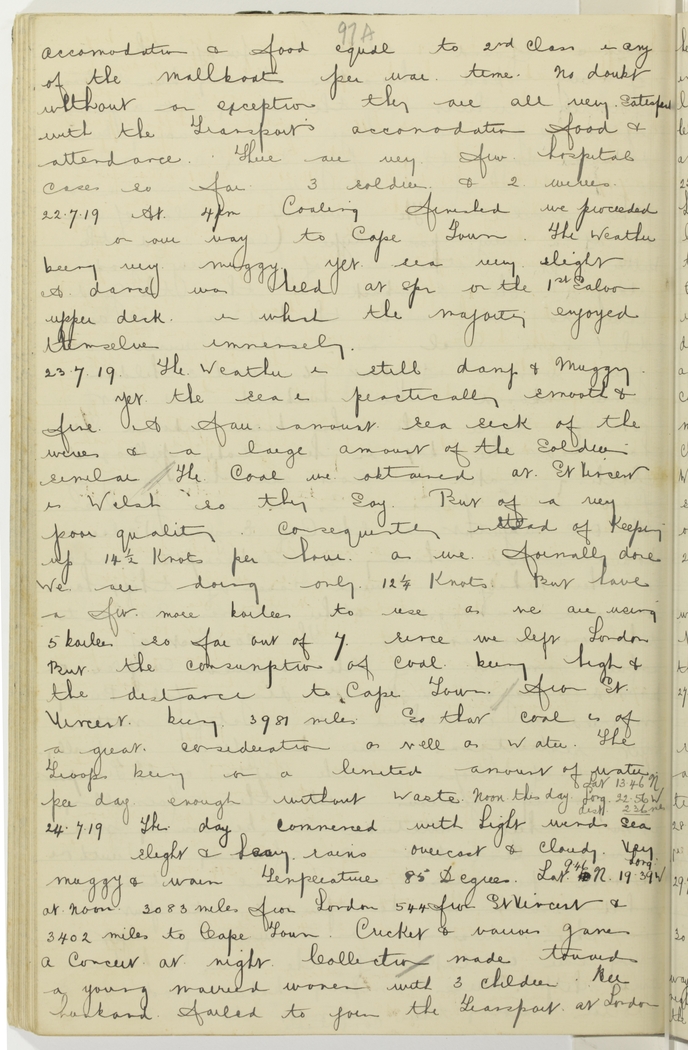 97A
accomodation & food equal to 2nd Class in any
of the mailboats per war. time. No doubt
without on exception they are all very
with the Transports accomodation food &
attendance. There are very few hospital
cases so far 3 soldiers & 2 wives.
22.7.19 At. 4pm Coaling finished we proceeded
on our way to Cape Town. The Weather
being very muggy yet sea very slight
A dance was held at 8pm on the 1st Saloon
upper deck. in which the majority enjoyed
themselves immensely.
23.7.19. The Weather is still damp & Muggy.
yet the sea is practically smooth &
fine. A fair amount sea sick of the
wives & a large amount of the Soldiers
similar The Coal we obtained at St Vincent
is Welsh so they Say. But of a very
poor quality. Consequently instead of Keeping
up 14½ Knots per hour. as we formally done
We are doing only 12¼ Knots. But have
a few more boilers to use as we are using
5 boilers so far out of 7. since we left London
But the consumption of Coal being high &
the distance to Cape Town from St.
Vincent. being 3981 miles So that coal is of
a great consideration as well as Water. The
Troops being on a limited amount of water
Lat 13.46 N
per day enough without Waste. Noon this day Long. 22.56 W
dist. 236 mls
24.7.19 The day commenced with light winds Sea
slight & heavy rains overcast & cloudy. Very
muggy & warm Temperature 85 Degrees. Lat 9.46 N. Long. 19.39 W
at Noon 3083 miles from London 544 from St Vincent &
3402 miles to Cape Town. Cricket & various games
A Concert at night. Collection made towards
a young married women with 3 children. Her
husband failed to join the Transport at London